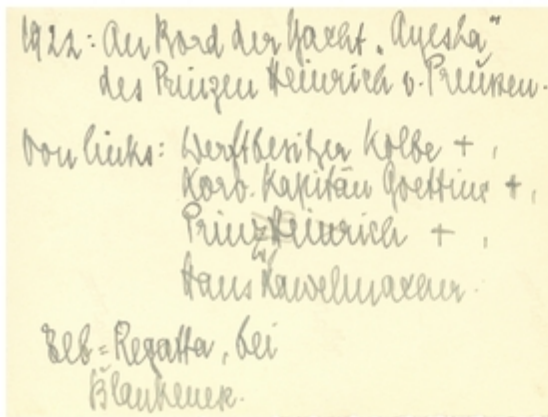 1922: An Bord der Yacht „Ayesha"
des Prinzen Heinrich v. Preußen.
Von links: Werftbesitzer Kolbe + ,
Korv. Kapitän +,
Prinz Heinrich + ,
Hans
Elb=Regatta, bei
Blankenese.